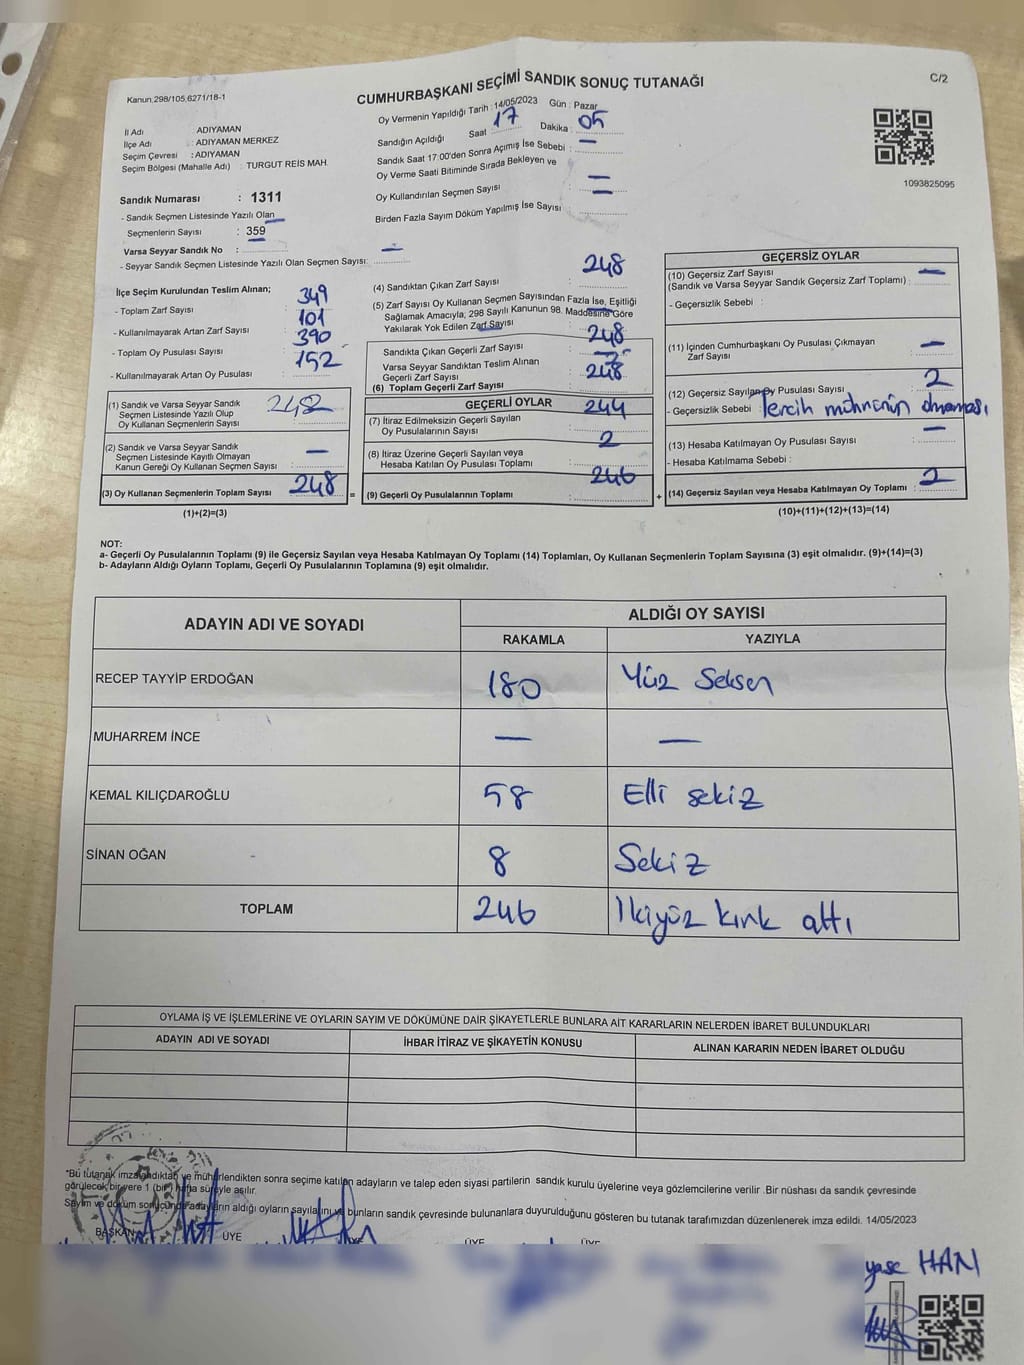 Kanun:298/105,6271/18-1
CUMHURBAŞKANI SEÇİMİ SANDIK SONUÇ TUTANAĞI
C/2
Oy Vermenin Yapıldığı Tarih :14/05/2023 Gün : Pazar
Sandığın Açıldığı Saat : 17 Dakika : 05
Sandık Saat 17:00'den Sonra Açımış İse Sebebi : —
Oy Verme Saati Bitiminde Sırada Bekleyen ve
Oy Kullandırılan Seçmen Sayısı : —
Birden Fazla Sayım Döküm Yapılmış İse Sayısı : —
İl Adı : ADIYAMAN
İlçe Adı : ADIYAMAN MERKEZ
Seçim Çevresi : ADIYAMAN
Seçim Bölgesi (Mahalle Adı) : TURGUT REİS MAH.
1093825095
Sandık Numarası : 1311
- Sandık Seçmen Listesinde Yazılı Olan
Seçmenlerin Sayısı : 359
Varsa Seyyar Sandık No : —
- Seyyar Sandık Seçmen Listesinde Yazılı Olan Seçmen Sayısı:
İlçe Seçim Kurulundan Teslim Alınan;
- Toplam Zarf Sayısı 349
- Kullanılmayarak Artan Zarf Sayısı 101
- Toplam Oy Pusulası Sayısı 390
- Kullanılmayarak Artan Oy Pusulası 152
(1) Sandık ve Varsa Seyyar Sandık
Seçmen Listesinde Yazılı Olup
Oy Kullanan Seçmenlerin Sayısı 248
(2) Sandık ve Varsa Seyyar Sandık
Seçmen Listesinde Kayıtlı Olmayan
Kanun Gereği Oy Kullanan Seçmen Sayısı : —
(3) Oy Kullanan Seçmenlerin Toplam Sayısı 248
(1)+(2)=(3)
=
(4) Sandıktan Çıkan Zarf Sayısı : 248
(5) Zarf Sayısı Oy Kullanan Seçmen Sayısından Fazla İse, Eşitliği
Sağlamak Amacıyla, 298 Sayılı Kanunun 98. Maddesine Göre
Yakılarak Yok Edilen Zarf Sayısı —
Sandıkta Çıkan Geçerli Zarf Sayısı 248
Varsa Seyyar Sandıktan Teslim Alınan
Geçerli Zarf Sayısı
(6) Toplam Geçerli Zarf Sayısı 248
GEÇERLİ OYLAR
(7) İtiraz Edilmeksizin Geçerli Sayılan
Oy Pusulalarının Sayısı 244
(8) İtiraz Üzerine Geçerli Sayılan veya
Hesaba Katılan Oy Pusulası Toplamı 2
(9) Geçerli Oy Pusulalarının Toplamı : 246
+
GEÇERSİZ OYLAR
(10) Geçersiz Zarf Sayısı
(Sandık ve Varsa Seyyar Sandık Geçersiz Zarf Toplamı) : —
- Geçersizlik Sebebi :
(11) İçinden Cumhurbaşkanı Oy Pusulası Çıkmayan
Zarf Sayısı : —
(12) Geçersiz Sayılan Oy Pusulası Sayısı : 2
- Geçersizlik Sebebi : Tercih mührünün olmaması
(13) Hesaba Katılmayan Oy Pusulası Sayısı : —
- Hesaba Katılmama Sebebi :
(14) Geçersiz Sayılan veya Hesaba Katılmayan Oy Toplamı : 2
(10)+(11)+(12)+(13)=(14)
NOT:
a- Geçerli Oy Pusulalarının Toplamı (9) ile Geçersiz Sayılan veya Hesaba Katılmayan Oy Toplamı (14) Toplamları, Oy Kullanan Seçmenlerin Toplam Sayısına (3) eşit olmalıdır. (9)+(14)=(3)
b- Adayların Aldığı Oyların Toplamı, Geçerli Oy Pusulalarının Toplamına (9) eşit olmalıdır.
ADAYIN ADI VE SOYADI
ALDIĞI OY SAYISI
RAKAMLA YAZIYLA
RECEP TAYYİP ERDOĞAN 180 Yüz Seksen
MUHARREM İNCE — —
KEMAL KILIÇDAROĞLU 58 Elli sekiz
SİNAN OĞAN 8 Sekiz
TOPLAM 246 İkiyüz kırk altı
OYLAMA İŞ VE İŞLEMLERİNE VE OYLARIN SAYIM VE DÖKÜMÜNE DAİR ŞİKAYETLERLE BUNLARA AİT KARARLARIN NELERDEN İBARET BULUNDUKLARI
ADAYIN ADI VE SOYADI İHBAR İTİRAZ VE ŞİKAYETİN KONUSU ALINAN KARARIN NEDEN İBARET OLDUĞU
*Bu tutanak imzalandıktan ve mühürlendikten sonra seçime katılan adayların ve talep eden siyasi partilerin sandık kurulu üyelerine veya gözlemcilerine verilir .Bir nüshası da sandık çevresinde
görülecek bir yere 1 (bir) hafta süreyle asılır.
Sayım ve döküm sonucunda adayların aldığı oyların sayılarını ve bunların sandık çevresinde bulunanlara duyurulduğunu gösteren bu tutanak tarafımızdan düzenlenerek imza edildi. 14/05/2023
BAŞKAN ÜYE ÜYE ÜYE ÜYE
HAN